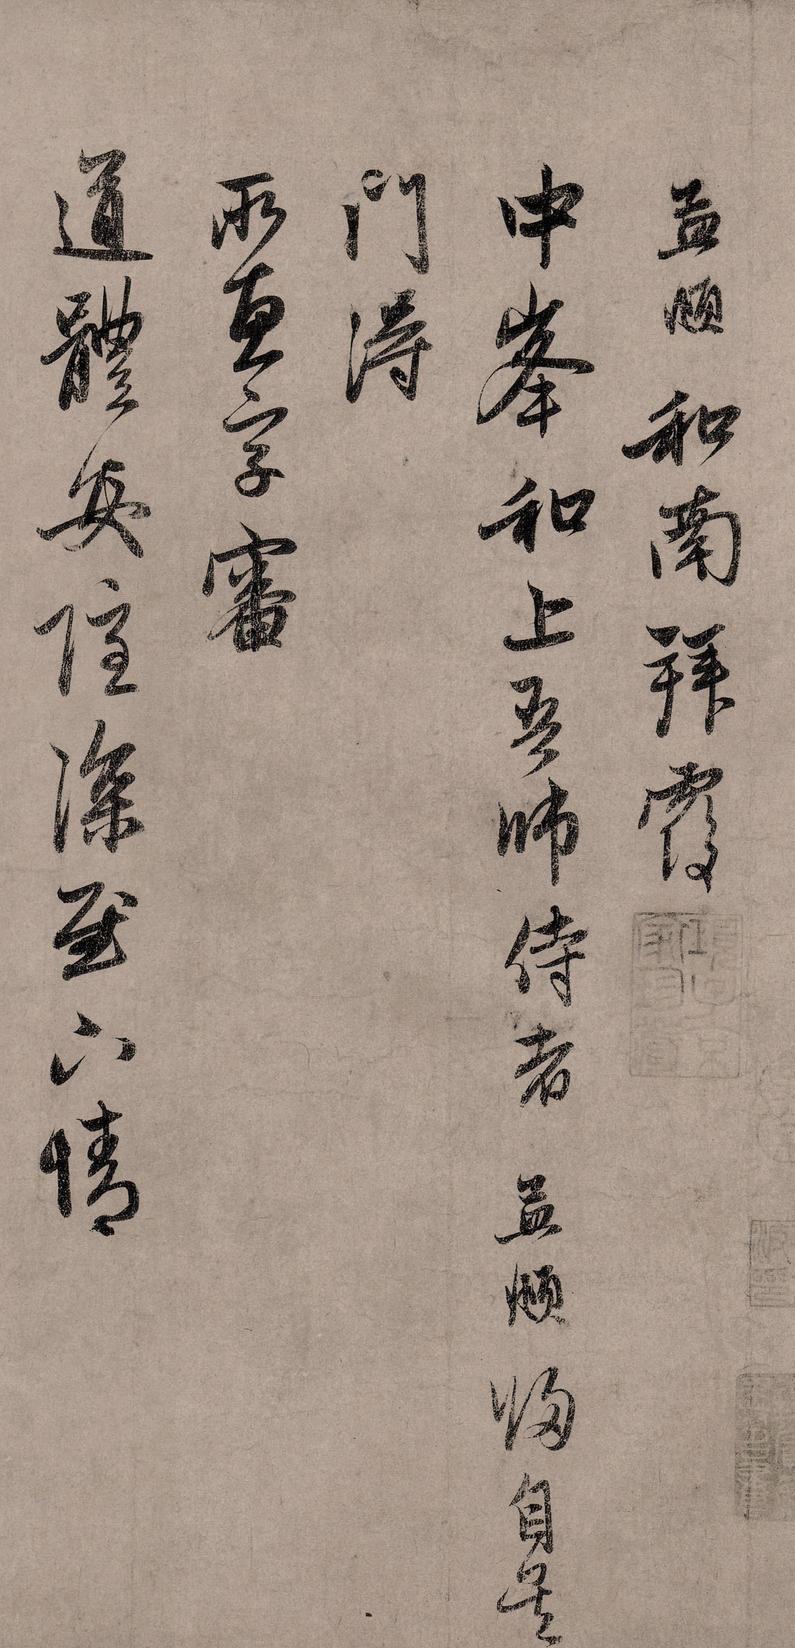 孟頫和南拜覆
中峯和上吾師侍者孟頫歸自吳
門得
所惠字審
道體安隱深慰下情